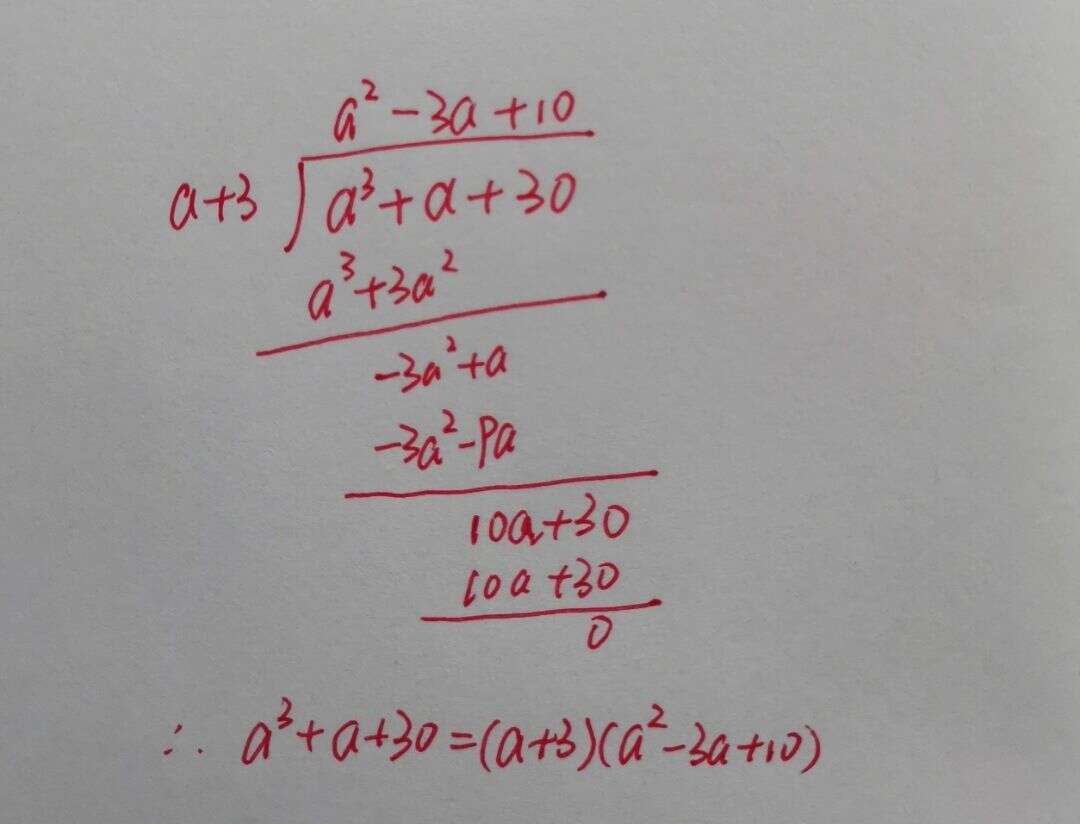 a² - 3a + 10
a+3 a³ + a + 30
a³+3a²
-3a²+a
-3a²-9a
10a+30
10a+30
0
∴ a³+a+30=(a+3)(a²-3a+10)